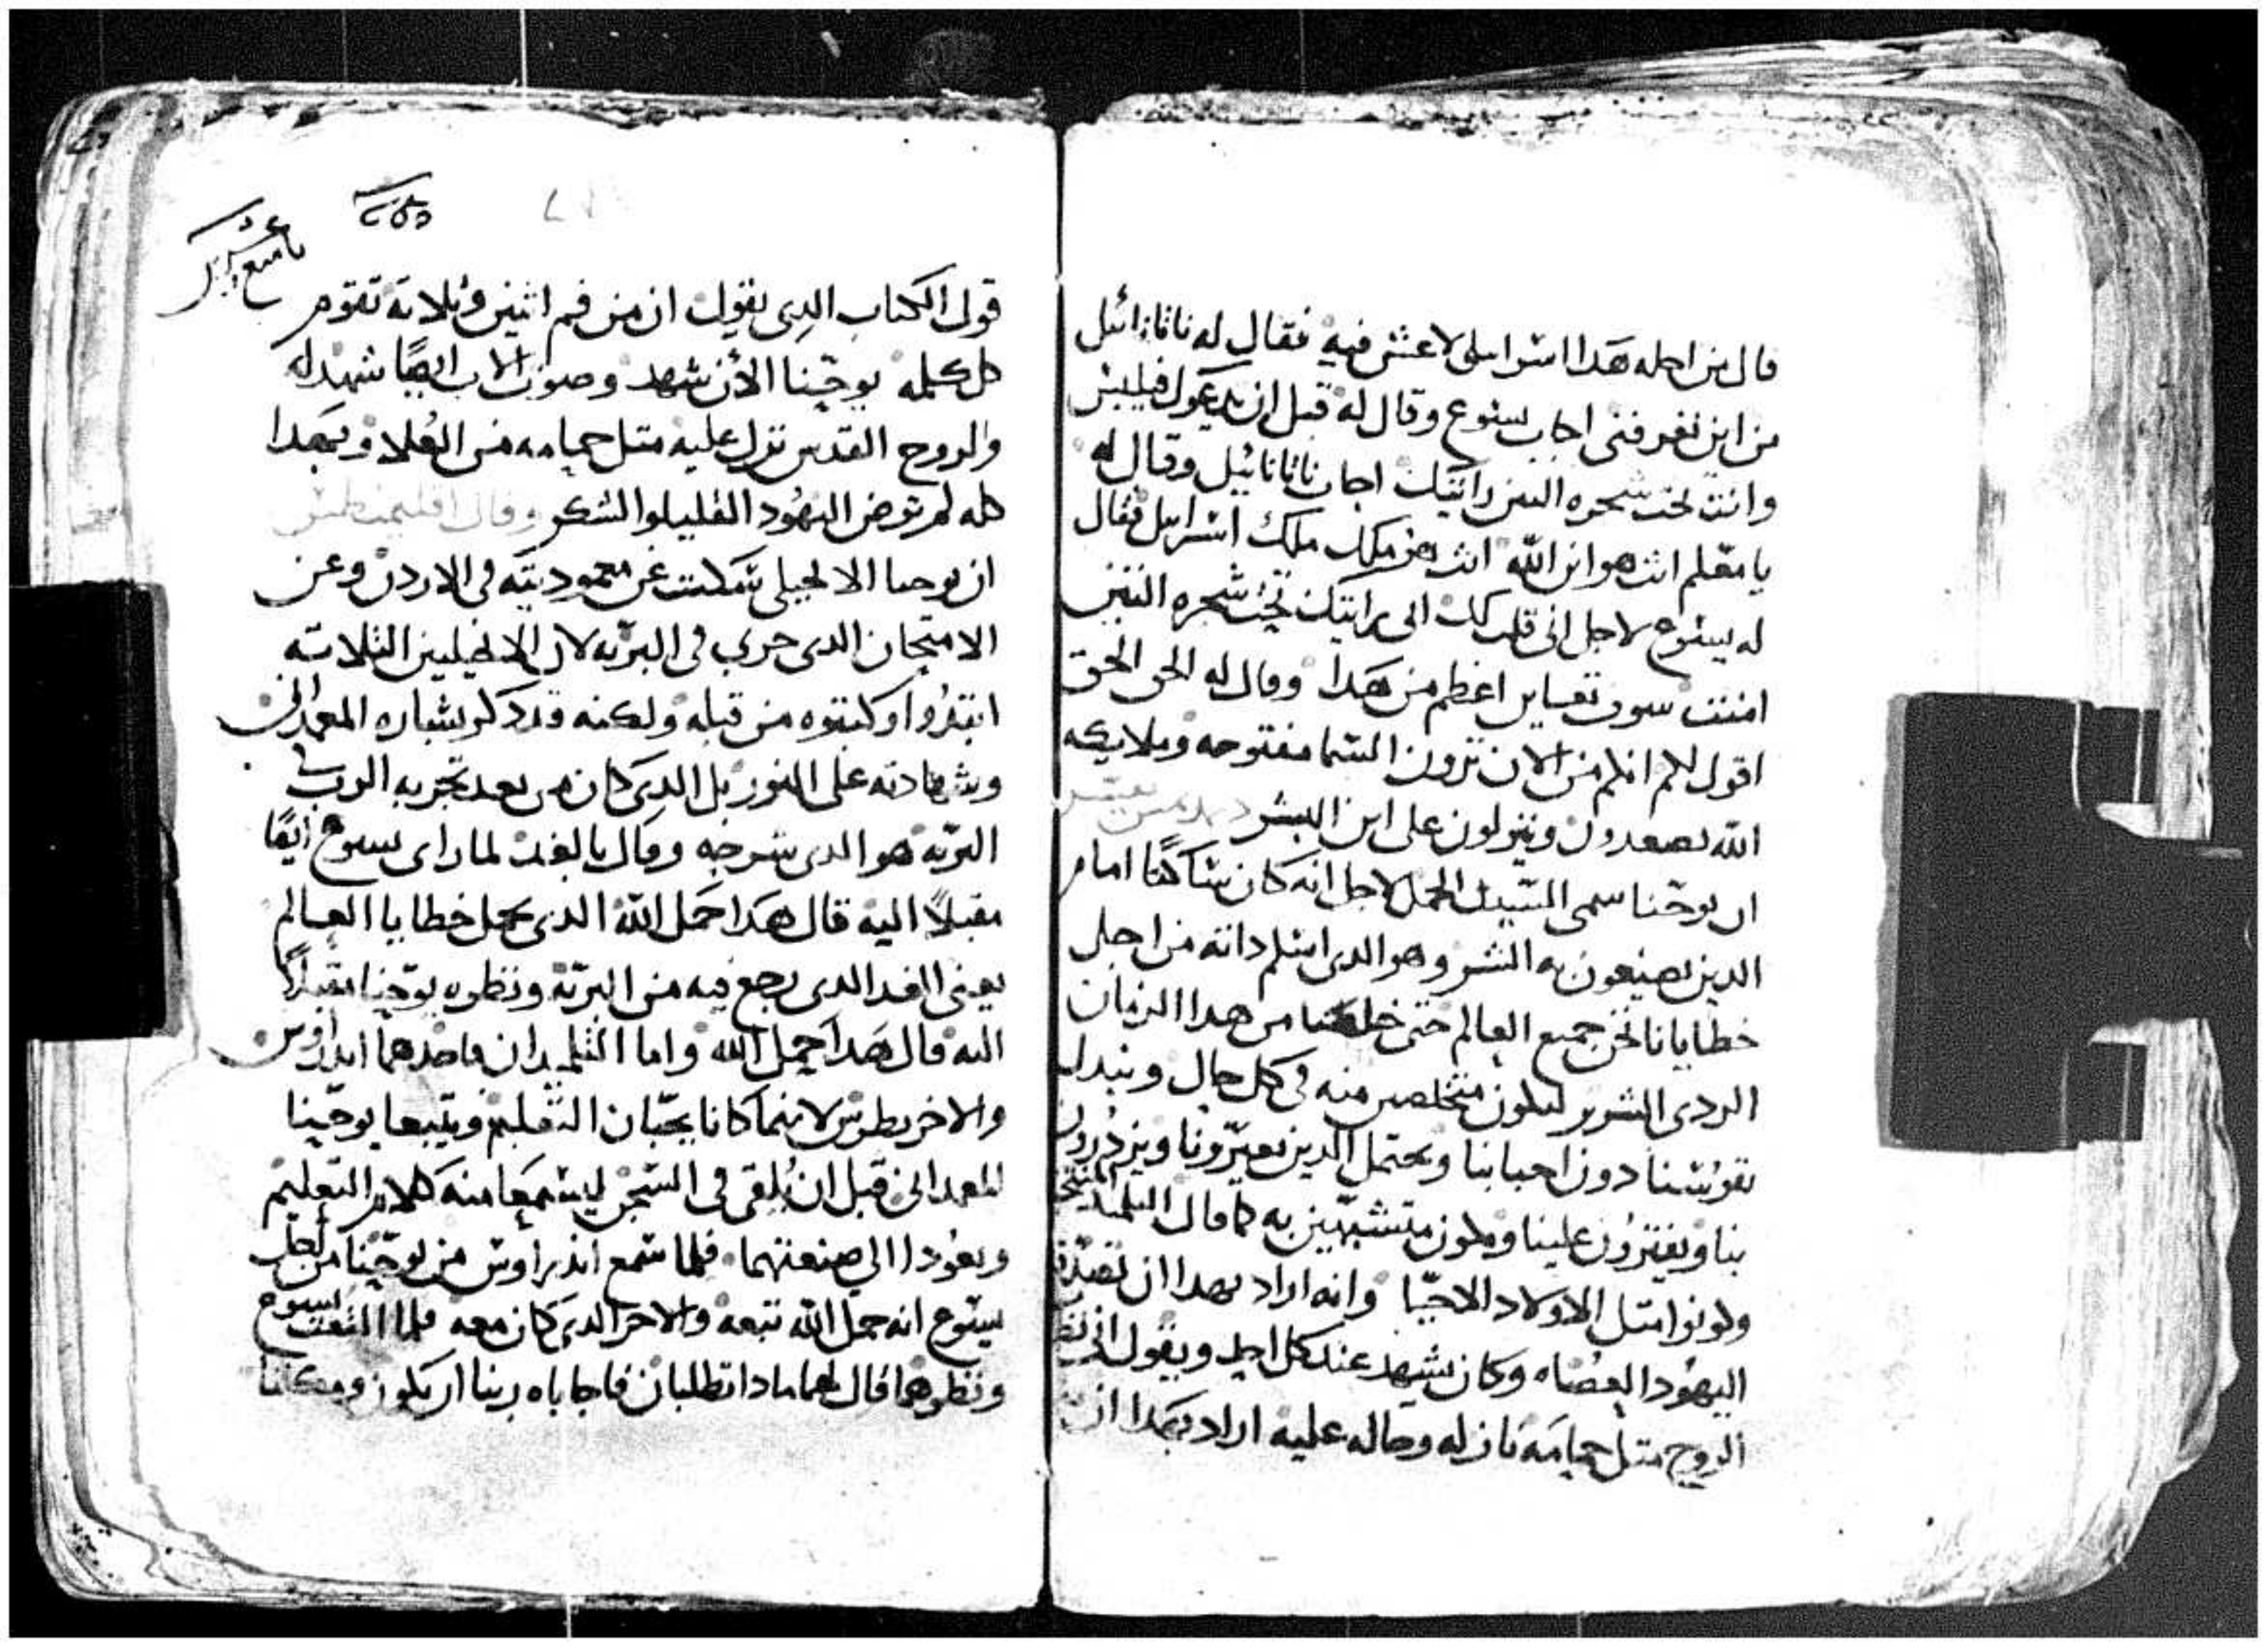 قال من اجله هدا اسراىىلى لا عش فيه فقال له ناثانائيل
من اين تعرفنى اجاب يسوع وقال له قبل ان يدعوك فيلبس
وانت تحت شجره التين رايتك اجاب ناثانائيل وقال له
يا معلم انت هو ابن الله انت هو ملك اسرائيل فقال
له يسوع لاجل انى قلت لك انى رايتك تحت شجره التين
امنت سوف تعاين اعظم من هدا وقال له الحق الحق
اقول لكم انكم من الان ترون السما مفتوحه وملايكه
الله يصعدون وينزلون على ابن البشر
ان يوحنا سمى السيد الحمل لاجل انه كان ساكتا امام
الدين يصنعون به الشر وهو الدى اسلم داته من اجل
خطايانا نحن جميع العالم حتى خلصنا من هدا الزمان
الردى الشرير لنكون متخلصين منه فى كل حال ونبدل
نفوسنا دون احبابنا ونحتمل الدين يعيرونا ويزدرون
بنا ويفترون علينا ونكون متشبهين به كما قال التلميد
وكونوا متل الاولاد الاحبا وانه اراد بهدا ان
اليهود العصاه وكان يشهد عند كل احد ويقول انى
الروح متل حمامه نازله وحاله عليه اراد بهدا ان
قول الكتاب الدى يقول ان من فم اثنين وتلاته تقوم
كل كلمه يوحنا الان شهد وصوت الاب ايضا شهد له
والروح القدس نزل عليه متل حمامه من العلا وبهدا
كله لم ترض اليهود القليلوا الشكر وقال اقليمنطس
ان يوحنا الانجيلى سكت عن معموديته فى الاردن وعن
الامتحان الدى جرى فى البريه لان الانجيليين التلاته
ابتدوا وكتبوه من قبله ولكنه قد دكر بشاره المعمدانى
وشهادته على النور بل الدى كان من بعد تجربه الرب فى
البريه هو الدى شرحه وقال بالغد لما راى يسوع ايضا
مقبلا اليه قال هدا حمل الله الدى يحمل خطايا العالم
يعنى الغد الدى رجع فيه من البريه ونظره يوحنا مقبلا
اليه قال هدا حمل الله واما التلميدان فاحدهما اندراوس
والاخر بطرس لانهما كانا يحبان التعليم ويتبعا يوحنا
المعمدانى قبل ان يلقى فى السجن ليسمعا منه كلام التعليم
ويعودا الى صنعتهما فلما سمع اندراوس من يوحنا من اجل
يسوع انه حمل الله تبعه والاخر الدى كان معه فلما التفت يسوع
ونظرهما قال لهما مادا تطلبان فاجاباه ربنا اين يكون